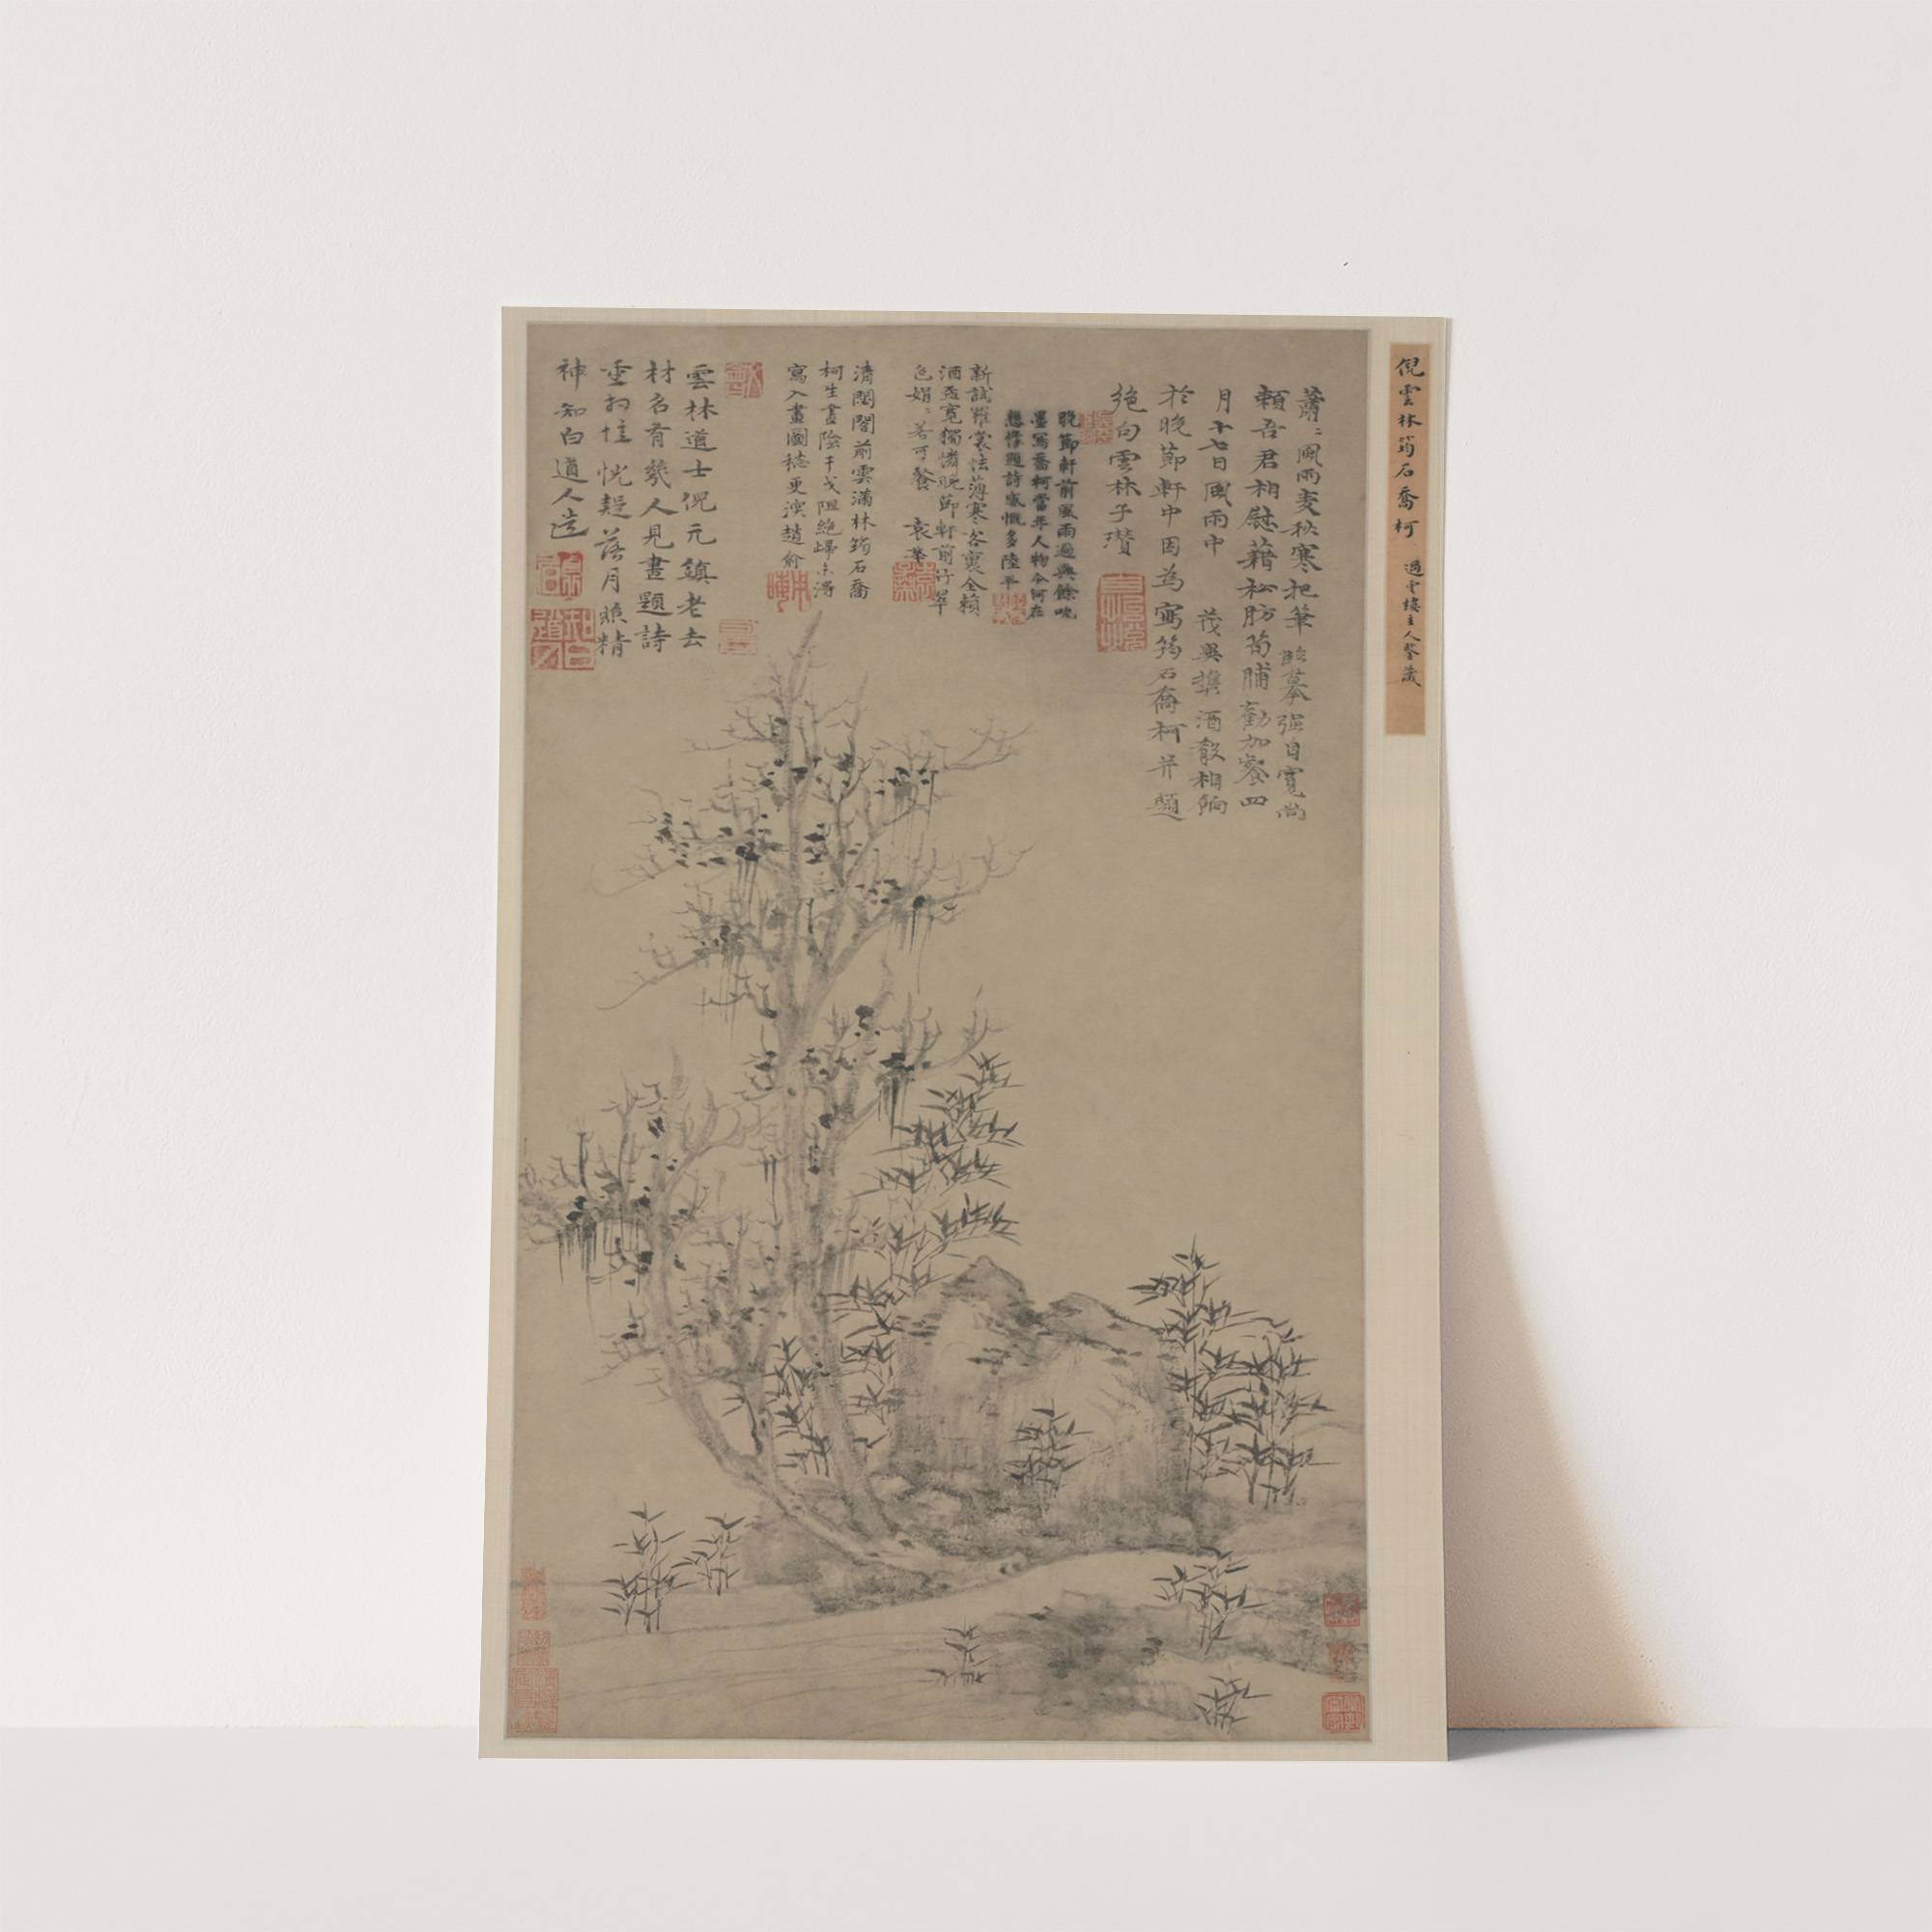 倪雲林筠石喬柯 過雲樓主人鑒藏
蕭〻風雨麦秋寒把筆臨摹強自寛尚
頼吾君相慰藉松肪筍脯勸加餐四
月十七日風雨中 茂異携酒殽相餉
於晚節軒中因為寫筠石喬柯并題
絶句雲林子瓚
晚節軒前風雨過興餘吮
墨寫喬柯當年人物今何在
想像題詩感慨多陸平
新試羅裳怯薄寒谷裏全賴
酒盃寛獨憐晚節軒前竹翠
色娟〻若可餐 袁華
清閟閣前雲滿林筠石喬
柯生晝陰干戈阻絶歸未得
寫入畫圖愁更深趙俞
雲林道士倪元鎮老去
材名有幾人見畫題詩
重相憶恍疑落月照精
神 知白道人造